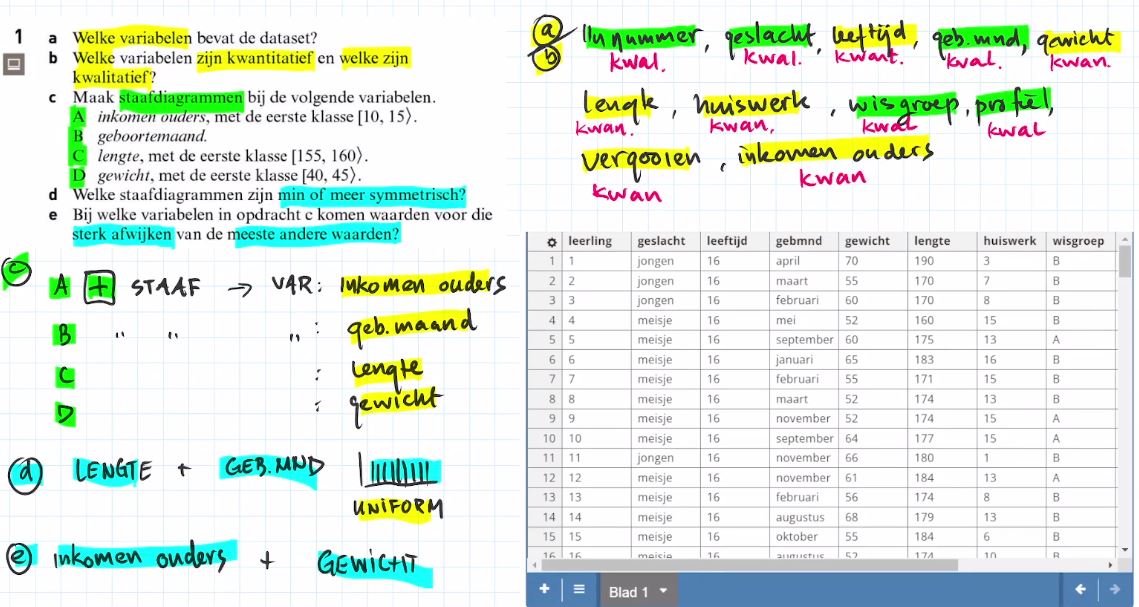 1 a Welke variabelen bevat de dataset?
b Welke variabelen zijn kwantitatief en welke zijn
kwalitatief?
c Maak staafdiagrammen bij de volgende variabelen.
A inkomen ouders, met de eerste klasse [10, 15⟩.
B geboortemaand.
C lengte, met de eerste klasse [155, 160⟩.
D gewicht, met de eerste klasse [40, 45⟩.
d Welke staafdiagrammen zijn min of meer symmetrisch?
e Bij welke variabelen in opdracht c komen waarden voor die
sterk afwijken van de meeste andere waarden?
a
b
nummer, geslacht, leeftijd, geb.mnd, gewicht
kwal. kwal. kwant. kwal. kwan.
lengte, huiswerk, wisgroep, profiel,
kwan. kwan. kwal kwal
vergooien, inkomen ouders
kwan kwan
c A + STAAF → VAR: inkomen ouders
B " " " : geb.maand
C : lengte
D : gewicht
d LENGTE + GEB.MND
UNIFORM
e inkomen ouders + GEWICHT
leerling geslacht leeftijd gebmnd gewicht lengte huiswerk wisgroep
1 1 jongen 16 april 70 190 3 B
2 2 jongen 16 maart 55 170 7 B
3 3 jongen 16 februari 60 170 8 B
4 4 meisje 16 mei 52 160 15 B
5 5 meisje 16 september 60 175 13 A
6 6 meisje 16 januari 65 183 16 B
7 7 meisje 16 februari 55 171 15 B
8 8 meisje 16 maart 52 174 13 B
9 9 meisje 16 november 52 174 15 A
10 10 meisje 16 september 64 177 15 A
11 11 jongen 16 november 66 180 1 B
12 12 meisje 16 november 61 184 13 A
13 13 meisje 16 februari 56 174 8 B
14 14 meisje 16 augustus 68 179 13 B
15 15 meisje 16 oktober 55 184 6 B
16 16 meisje 16 augustus 52 174 10 B
Blad 1